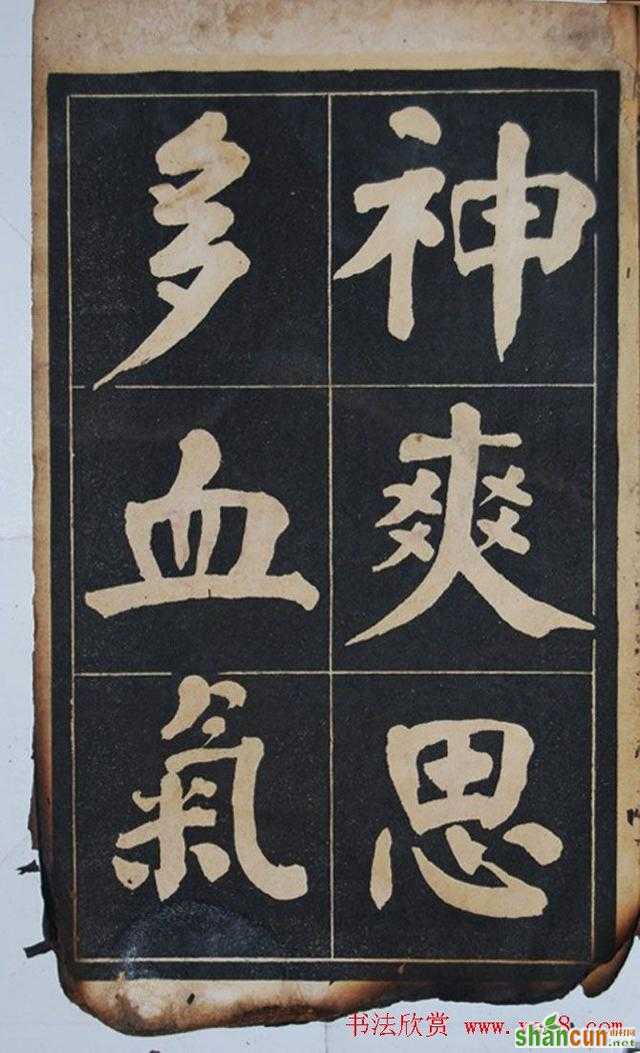 神爽思
多血氣
书法欣赏
shancun
.net